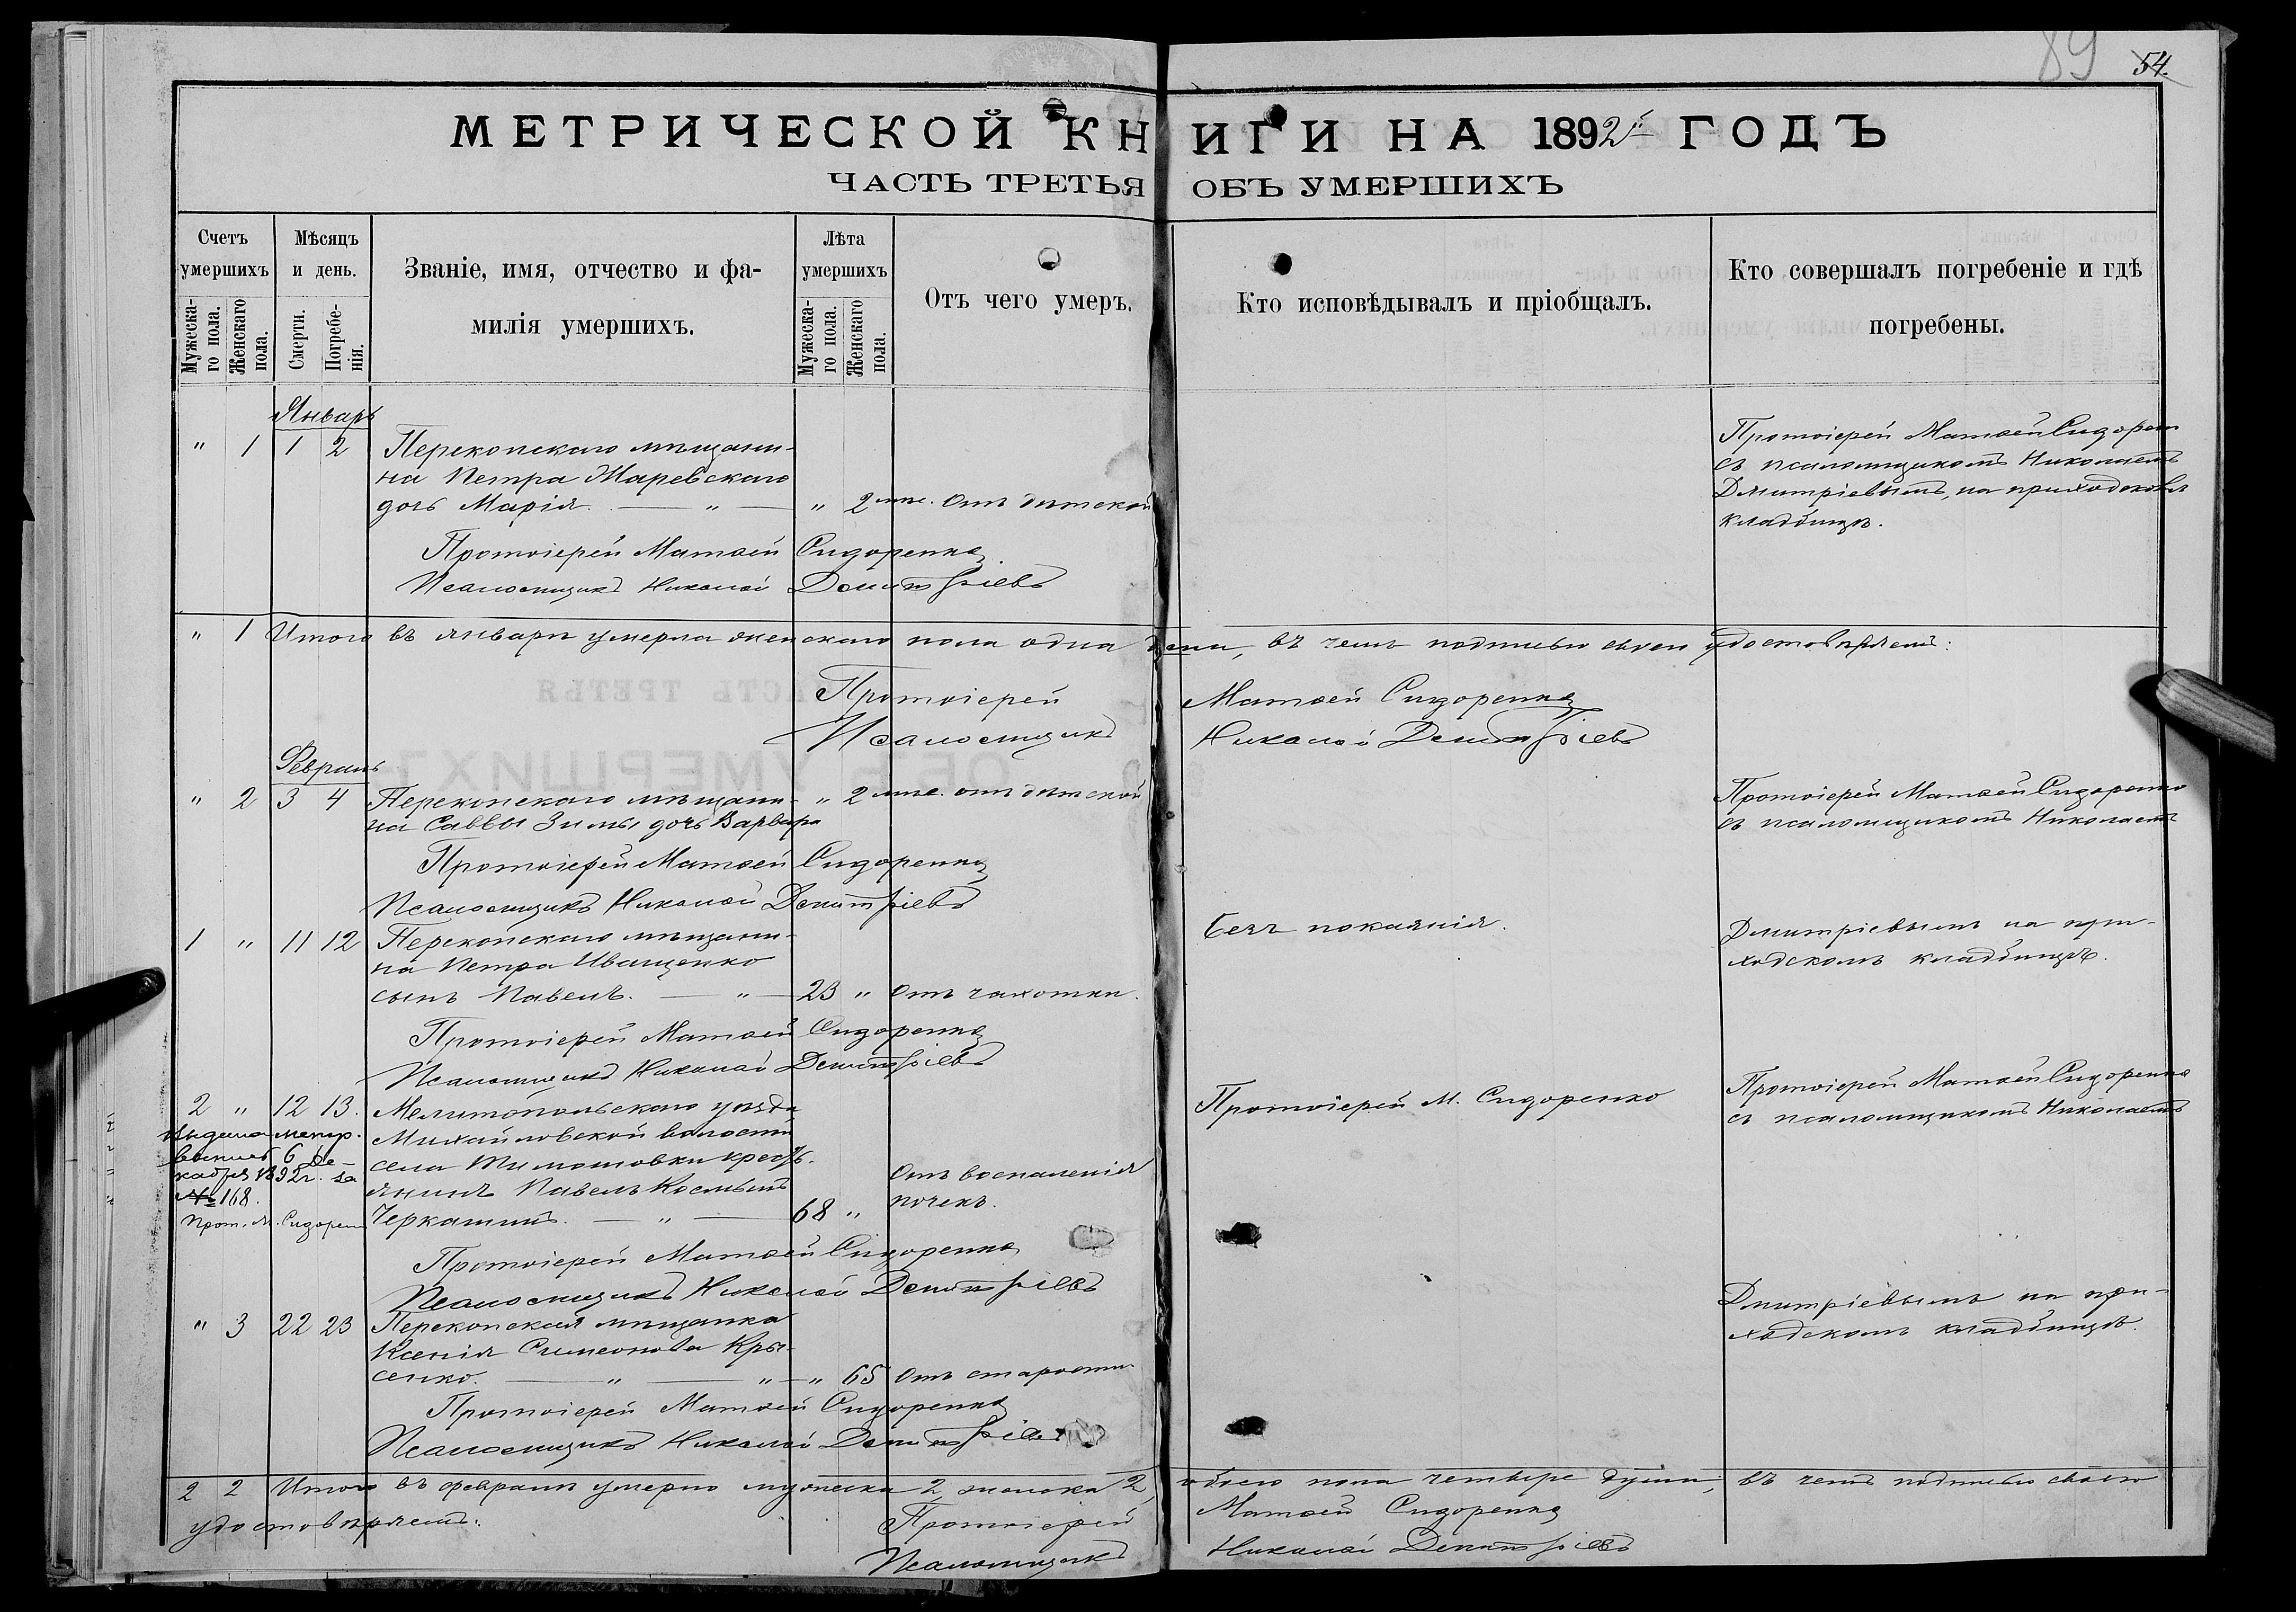 89 54.
МЕТРИЧЕСКОЙ КНИГИ НА 1892й ГОДЪ
ЧАСТЬ ТРЕТЬЯ ОБЪ УМЕРШИХЪ
Счетъ умершихъ
Мужескаго пола.
Женскаго пола.
Мѣсяцъ и день.
Смерти.
Погребенія.
Званіе, имя, отчество и фа-
милія умершихъ.
Лѣта умершихъ
Мужескаго пола.
Женскаго пола.
Отъ чего умеръ.
Кто исповѣдывалъ и пріобщалъ.
Кто совершалъ погребеніе и гдѣ
погребены.
Январь
" 1 1 2 Перекопскаго мѣщани-
на Петра Жаревскаго
дочь Марія. — " — " 2 мѣс. Отъ дѣтской
Протоіерей Матѳей Сидорен
съ псаломщикомъ Николаемъ
Дмитріевымъ, на приходскомъ
кладбищѣ.
Протоіерей Матѳей Сидоренко
Псаломщикъ Николай Дмитріевъ
" 1 Итого въ январѣ умерла женскаго пола одна душа, въ чемъ подписью своею удостовѣряемъ:
Протоіерей Матѳей Сидоренко
Псаломщикъ Николай Дмитріевъ
Февраль
" 2 3 4 Перекопскаго мѣщани- " 2 мѣс. отъ дѣтской
на Саввы Зимы дочь Варвара
Протоіерей Матѳей Сидоренко
съ псаломщикомъ Николаемъ
Протоіерей Матѳей Сидоренко
Псаломщикъ Николай Дмитріевъ
1 " 11 12 Перекопскаго мѣщани-
на Петра Иващенко
сынъ Павелъ. — " — 23 " Отъ чахотки.
Безъ покаянія.
Дмитріевымъ на при-
ходскомъ кладбищѣ.
Протоіерей Матѳей Сидоренко
Псаломщикъ Николай Дмитріевъ
2 " 12 13. Мелитопольскаго уѣзда
Михайловской волости
села Тимошовки кресть-
янинъ Павелъ Космынъ
Черкашинъ. — " — 68 "
Отъ воспаленія
почекъ.
Протоіерей М. Сидоренко
Протоіерей Матѳей Сидоренко
съ псаломщикомъ Николаемъ
Выдана метр.
выпись 6 Де-
кабря 1892 г. за
№ 168.
Прот. М. Сидорен
Протоіерей Матѳей Сидоренко
Псаломщикъ Николай Дмитріевъ
" 3 22 23 Перекопская мѣщанка
Ксенія Симеонова Кры-
сенко. — " — " — " 65 Отъ старости
Дмитріевымъ на при-
ходскомъ кладбищѣ.
Протоіерей Матѳей Сидоренко
Псаломщикъ Николай Дмитріевъ
2 2 Итого въ февралѣ умерло мужеска 2, женска 2, обоего пола четыре души, въ чемъ подписью своею
удостовѣряемъ:
Протоіерей Матѳей Сидоренко
Псаломщикъ Николай Дмитріевъ